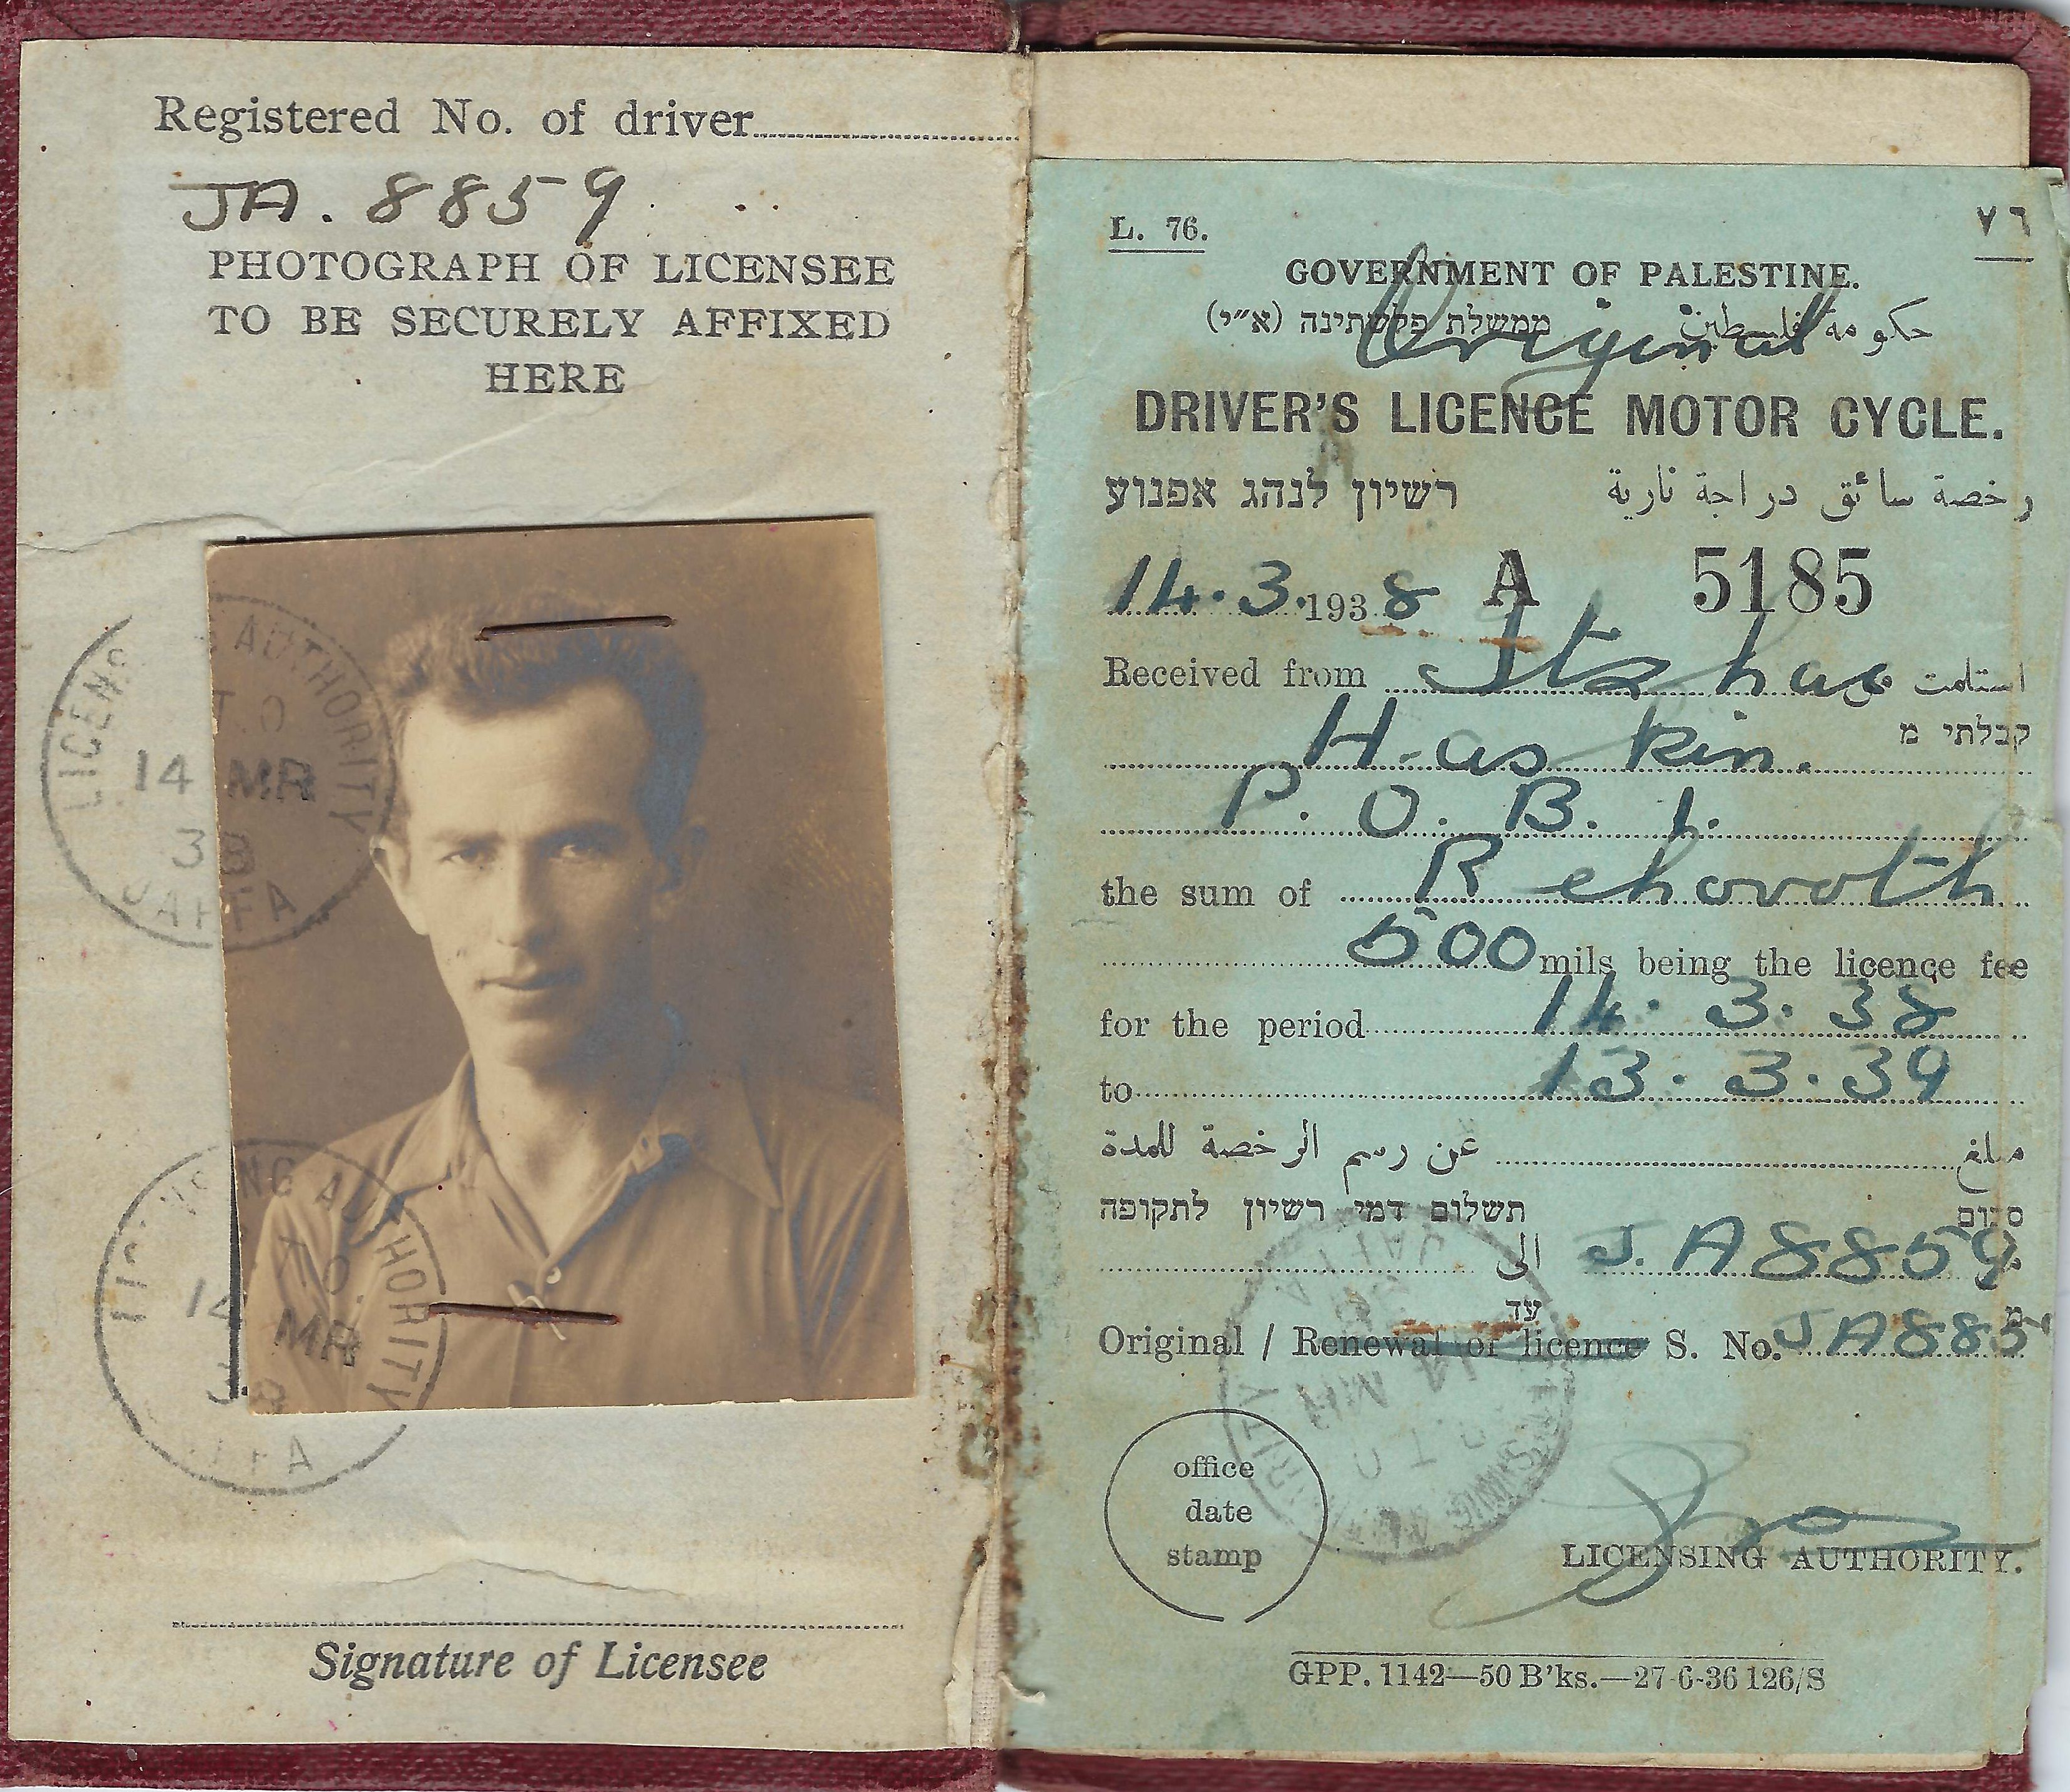 Registered No. of driver
JA. 8859
PHOTOGRAPH OF LICENSEE
TO BE SECURELY AFFIXED
HERE
LICENS AUTHORITY
T.O
14 MR
38
JAFFA
NG AUTHORITY
T.O.
14 MR
38
Signature of Licensee
L. 76.
٧٦
GOVERNMENT OF PALESTINE.
ממשלת פלשתינה (א״י) حكومة فلسطين
Original
DRIVER'S LICENCE MOTOR CYCLE.
רשיון לנהג אפנוע رخصة سائق دراجة نارية
14.3.1938 A 5185
Received from Itzhac استلمت من
Haskin. קבלתי מ
P. O. B. 1.
the sum of Rehovoth
500 mils being the licence fee
for the period 14. 3. 38
to 13. 3. 39
مبلغ عن رسم الرخصة للمدة
סכום תשלום דמי רשיון לתקופה
الى J. A 8859
עד מ-
Original / Renewal of licence S. No. JA885
LICENSING AUTHORITY
T O
14 MR
38
JAFFA
office
date
stamp
LICENSING AUTHORITY.
GPP. 1142—50 B'ks.—27-6-36 126/S